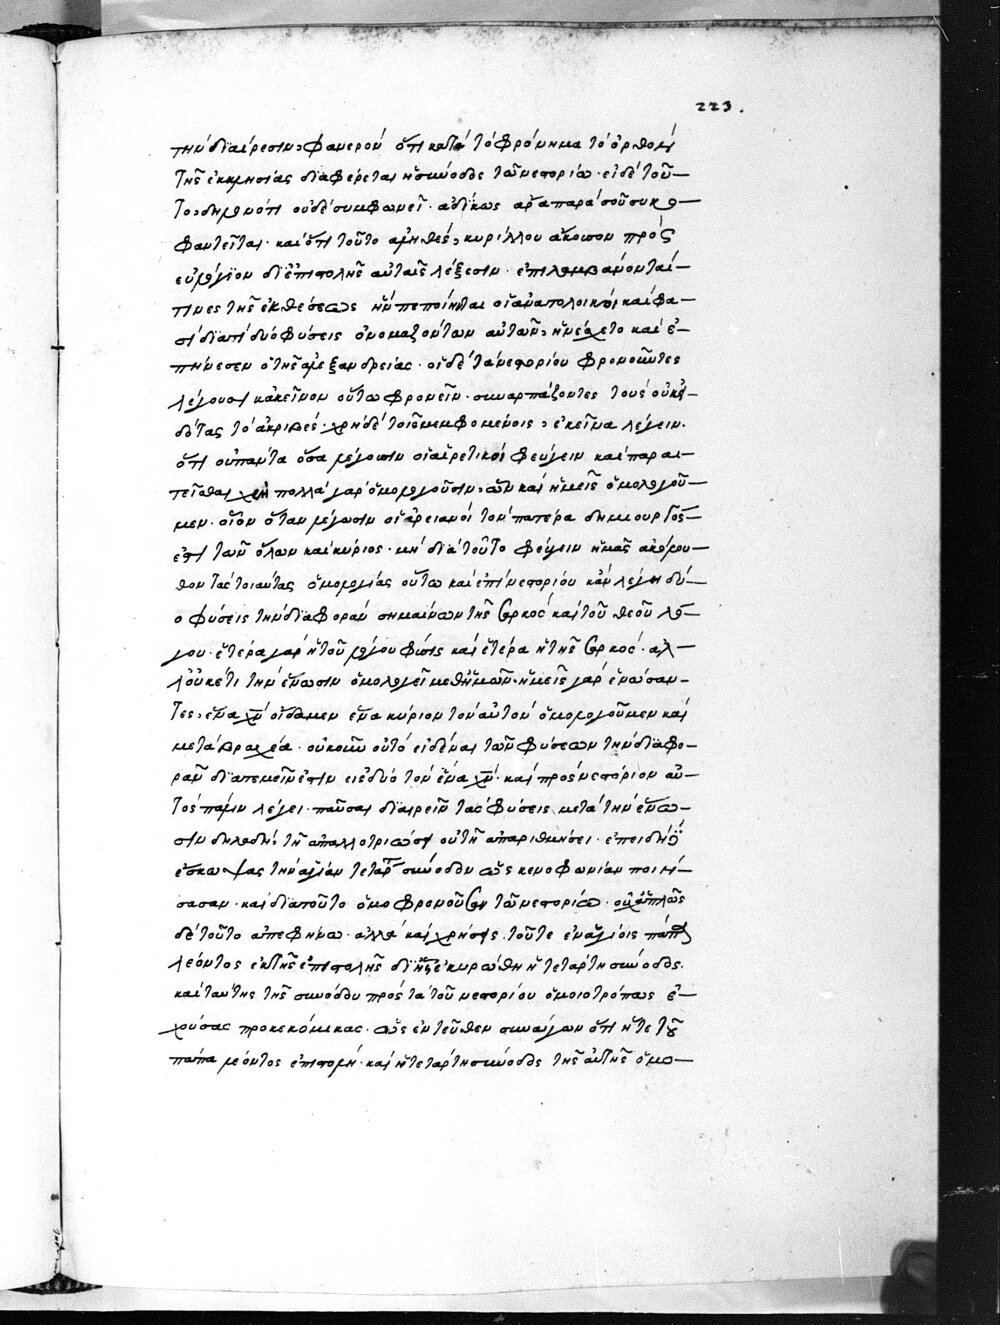 223.
τὴν διαίρεσιν, φανερὸν ὅτι κατὰ τὸ φρόνημα τὸ ὀρθὸν
τῆς ἐκκλησίας διαφέρεται ἡ σύνοδος τῶ νεστορίω· εἰ δὲ τοῦ-
το, δηλονότι οὐδὲ συμφωνεῖ· ἀδίκως ἄρα παρὰ σοῦ συκο-
φαντεῖται· καὶ ὅτι τοῦτο ἀληθές, κυρίλλου ἄκουσον πρὸς
εὐλόγιον δι' ἐπιστολῆς αὐταῖς λέξεσιν· ἐπιλαμβάνονταί
τινες τῆς ἐκθέσεως ἣν πεποίηνται οἱ ἀνατολικοὶ καὶ φα-
σὶ διατί δύο φύσεις ὀνομαζόντων αὐτῶν, ἠνέσχετο καὶ ἐ-
πήνεσεν ὁ τῆς ἀλεξανδρείας· οἱ δὲ τὰ νεστορίου φρονοῦντες
λέγουσι κἀκεῖνον οὕτω φρονεῖν· συναρπάζοντες τοὺς οὐκ εἰ-
δότας τὸ ἀκριβές· χρὴ δὲ τοῖς μεμφομένοις, ἐκεῖνα λέγειν·
ὅτι οὐ πάντα ὅσα λέγουσιν οἱ αἱρετικοὶ φεύγειν καὶ παραι-
τεῖσθαι χρὴ πολλὰ γὰρ ὁμολογοῦσιν, ὧν καὶ ἡμεῖς ὁμολογοῦ-
μεν· οἷον ὅταν λέγωσιν οἱ ἀρειανοὶ τὸν πατέρα δημιουργὸς
ἐστὶ τῶν ὅλων καὶ κύριος· μὴ διὰ τοῦτο φεύγειν ἡμᾶς ἀκόλου-
θον τὰς τοιαύτας ὁμολογίας οὕτω καὶ ἐπὶ νεστορίου κἂν λέγη δύ-
ο φύσεις τὴν διαφορὰν σημαίνων τῆς σαρκὸς καὶ τοῦ θεοῦ λό-
γου· ἑτέρα γὰρ ἡ τοῦ λόγου φύσις καὶ ἑτέρα ἡ τῆς σαρκός· ἀλ-
λ' οὐκέτι τὴν ἕνωσιν ὁμολογεῖ μεθ' ἡμῶν· ἡμεῖς γὰρ ἑνώσαν-
τες, ἕνα χν οἴδαμεν ἕνα κύριον τὸν αὐτὸν ὁμολογοῦμεν καὶ
μετὰ βραχέα· οὐκοῦν οὐ τὸ εἰδέναι τῶν φύσεων τὴν διαφο-
ρὰν διατέμνειν ἐστὶν εἰς δύο τὸν ἕνα χν· καὶ πρὸς νεστόριον αὐ-
τὸς πάλιν λέγει· παῦσαι διαιρεῖν τὰς φύσεις μετὰ τὴν ἕνω-
σιν δηλαδή, τῆ ἀπαλλοτριώσει οὐ τῆ ἀπαριθμήσει· ἐπειδὴ
ἔσκωψας τὴν ἁγίαν τετάρτην σύνοδον ὡς κενοφωνίαν ποιή-
σασαν· καὶ διὰ τοῦτο ὁμοφρονοῦσαν τῶ νεστορίω· οὐχ ἁπλῶς
δὲ τοῦτο ἀπεφήνω· ἀλλὰ καὶ χρήσεις τοῦ τε ἐν ἁγίοις πάπα
λέοντος ἐκ τῆς ἐπιστολῆς δι' ἧς ἐκυρώθη ἡ τετάρτη σύνοδος·
καὶ ταύτης τῆς συνόδου πρὸς τὰ τοῦ νεστορίου ὁμοιοτρόπως ἐ-
χούσας προκεκόμικας· ὡς ἐντεῦθεν συνάγων ὅτι ἥ τε τοῦ
πάπα λέοντος ἐπιστολὴ· καὶ ἡ τετάρτη σύνοδος τῆς αὐτῆς ὁμο-